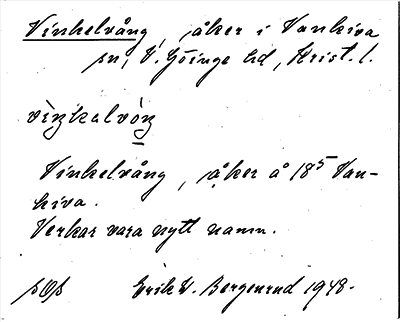 Vinkelvång, åker i Vankiva
sn, V. Göinge hd, Krist. l.
vìŋkalvóŋ
Vinkelvång, åker å 18⁵ Van-
kiva.
Verkar vara nytt namn.
Erik W. Bergenrud 1948.